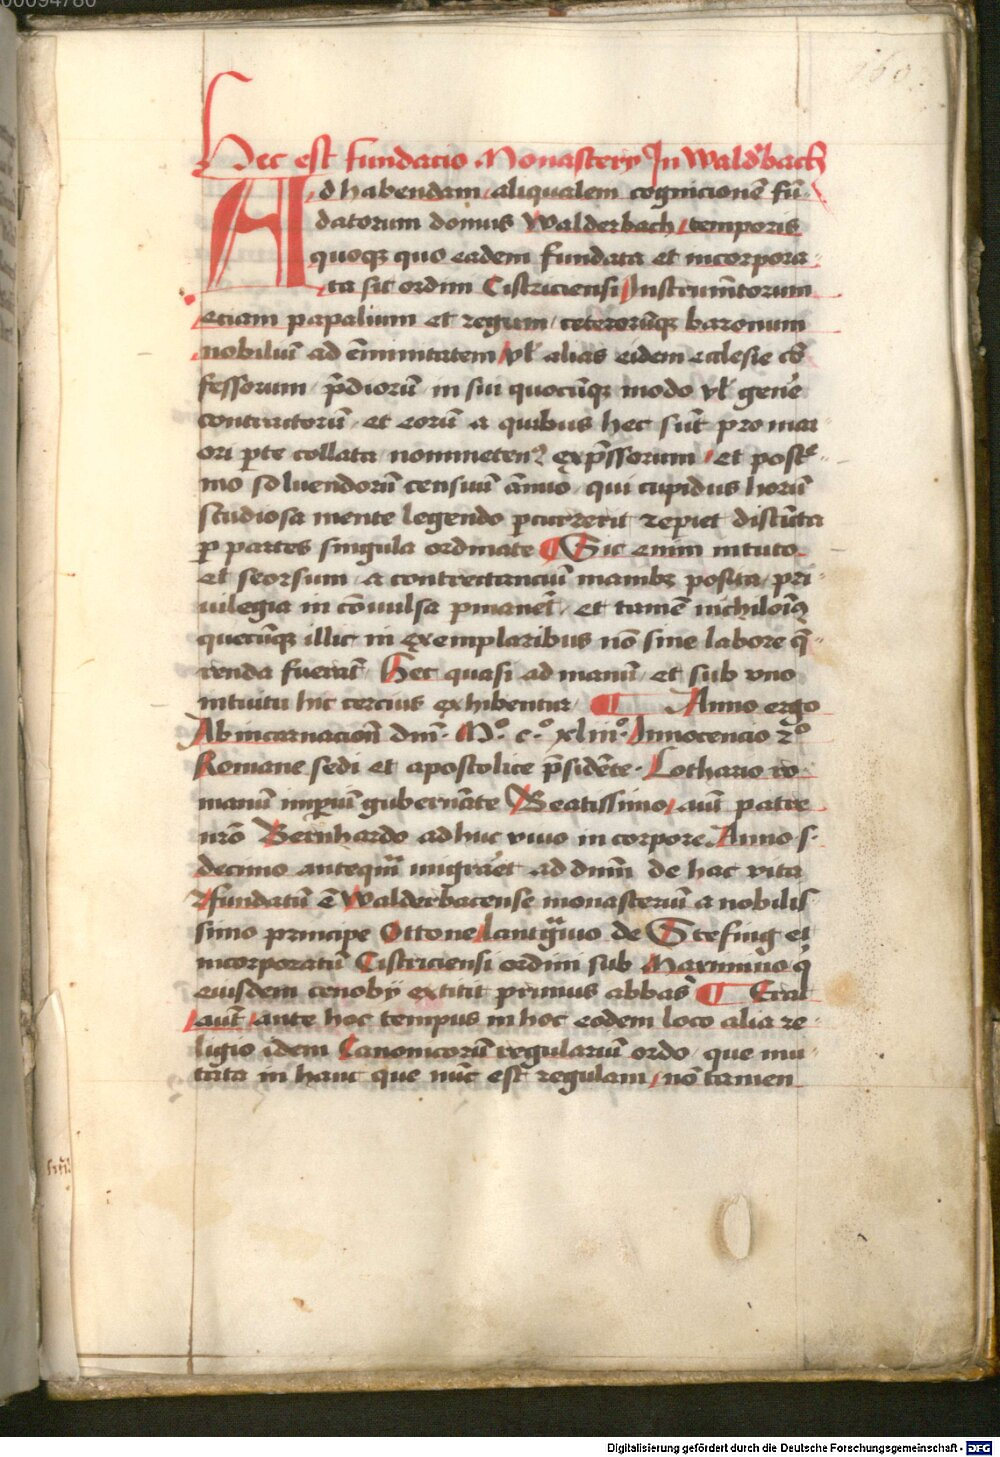 00094780
160.
Hec est fundacio Monastery In Wald'bach
Ad habendam aliqualem cognicionē fū
datorum domus Walderbach temporis
quoqꝫ quo eadem fundata et incorpora
ta sit ordini Cistriciensi Instrum̄torum
eciam papalium et regum ceterorūqꝫ baronum
nobiliū ad ēminitatem vl' alias eidem ecclesie
fessorum p̄diorū in sui quocūqꝫ modo vl' gen'e
contractorū et eorū a quibus hec sūt pro mai
ori ꝑte collata exp̄ssorum et post
mo soluendorū censuū ānuo qui cupidus horū
studiosa mente legendo ꝑcurrerit repiet distīcta
ꝑ partes singula ordinate Sic enim in tuto
et seorsum a contrectanciū manibꝫ posita pri
uilegia in cōuulsa ꝑmanet et tamē nichilōiꝯ
quecūqꝫ illic in exemplaribus nō sine labore q̄
renda fuerāt Hec quasi ad manū et sub vno
intuitu hic cercius exhibentur Anno ergo
Ab incarnacion̄ dn̄i M° c° xliii° Innocencio 2°
Romane sedi et apostolice p̄sidēte Lothario ro
manū impiū gubernāte Beatissimo aut̄ patre
nr̄o Bernhardo adhuc viuo in corpore Anno s
decimo anteqm̄ migraret ad dn̄m de hac vita
fundatū ē Walderbacense monasteriū a nobilis
simo principe Ottone lantgͣuio de Stefing et
incorporatū Cistriciensi ordini sub Maxmino q
eiusdem cenoby extitit primus abbas Erat
aut̄ ante hoc tempus in hoc eodem loco alia re
ligio idem Canonicorū regulariū ordo que mu
tata in hanc que nūc est regulam nō tamen
Digitalisierung gefördert durch die Deutsche Forschungsgemeinschaft - DFG